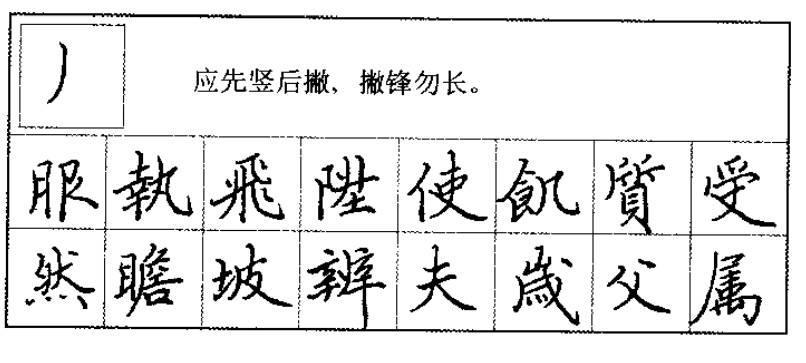 丿
应先竖后撇，撇锋勿长。
服執飛陛使飢質受
然瞻坡辨夫歳父属